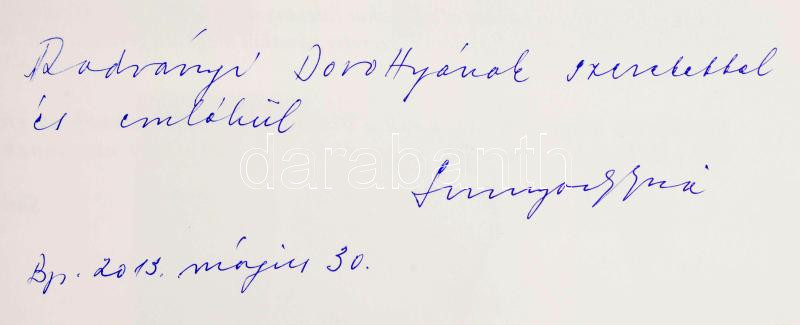 Radványi Dorottyának szeretettel
és emlékül
darabanth
Bp. 2013. május 30.